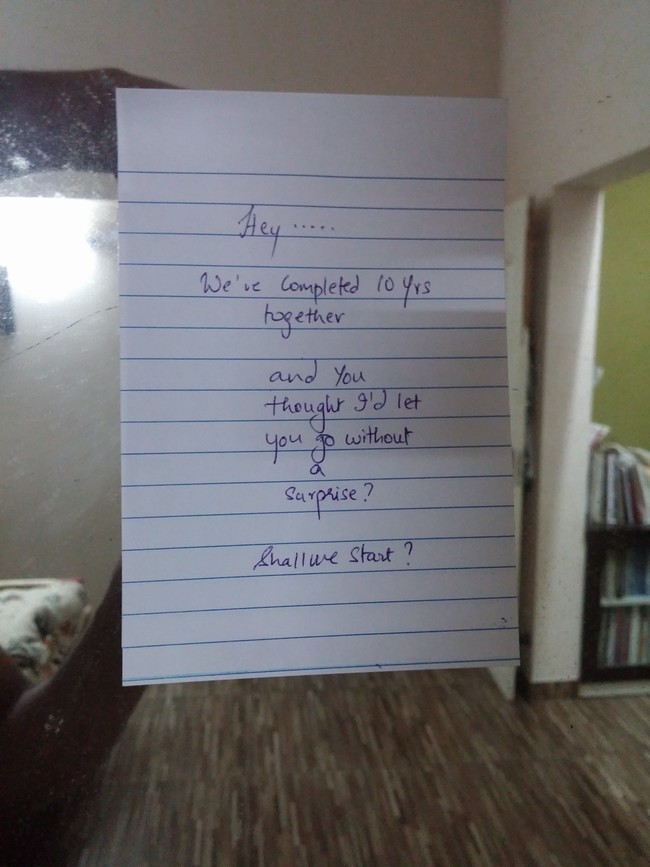 Hey .....
We've Completed 10 Yrs
together
and You
thought I'd let
you go without
a
Surprise?
Shall we Start?